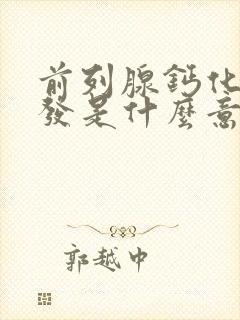 前列腺鈣化
發是什麼意
郭越中